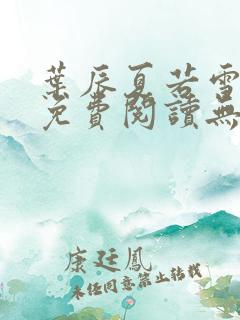 葉辰夏若雪
免費閱讀無
康廷鳳
未經同意禁止轉載